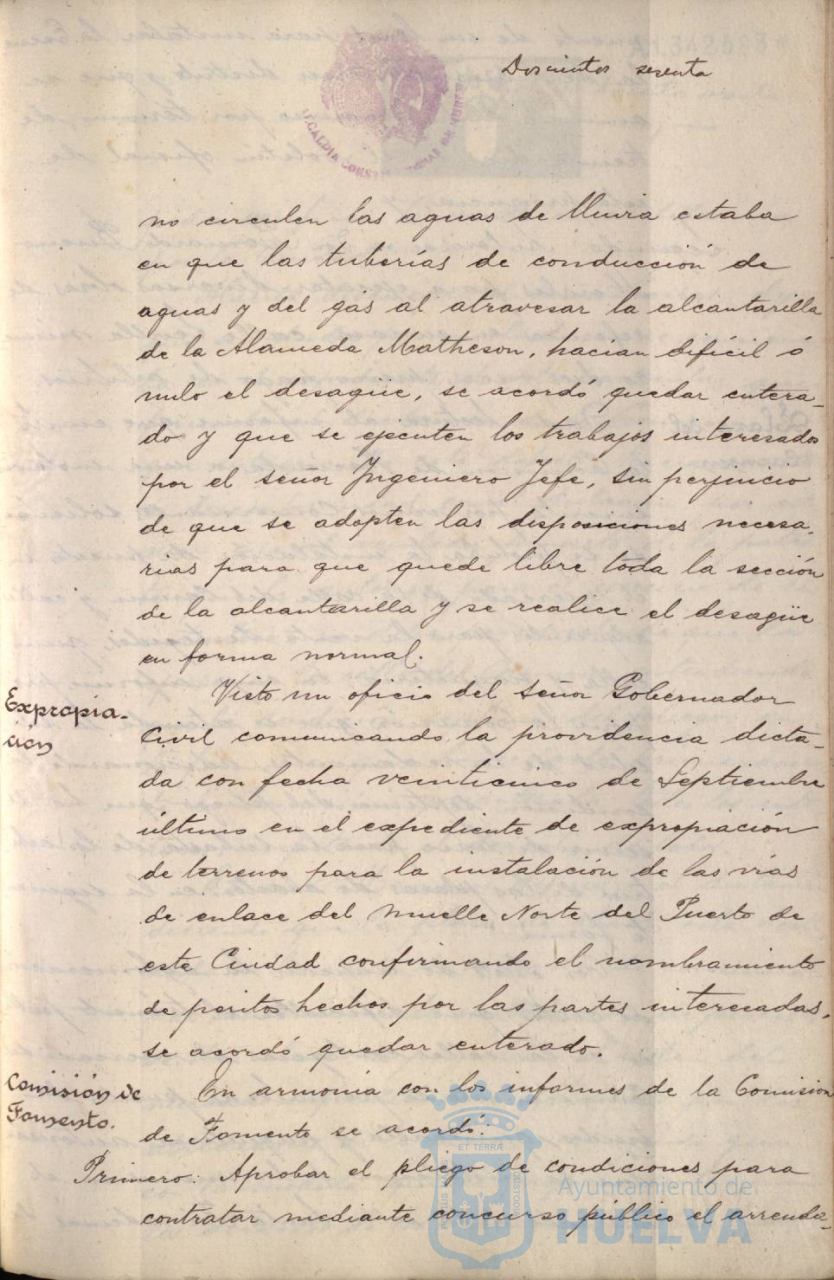 Doscientos sesenta
ALCALDIA CONSTITUCIONAL DE HUELVA
no circulen las aguas de lluvia estaba
en que las tuberías de conducción de
aguas y del gas al atravesar la alcantarilla
de la Alameda Matheson, hacían difícil ó
nulo el desagüe, se acordó quedar entera-
do y que se ejecuten los trabajos interesados
por el señor Ingeniero Jefe, sin perjuicio
de que se adopten las disposiciones necesa-
rias para que quede libre toda la sección
de la alcantarilla y se realice el desagüe
en forma normal.
Expropia-
ción
Visto un oficio del señor Gobernador
Civil comunicando la providencia dicta-
da con fecha veinticinco de Septiembre
último en el expediente de expropiación
de terrenos para la instalación de las vías
de enlace del muelle Norte del Puerto de
este Ciudad confirmando el nombramiento
de peritos hechos por las partes interesadas,
se acordó quedar enterado.
Comisión de
Fomento.
En armonia con los informes de la Comision
de Fomento se acordó:
Primero: Aprobar el pliego de condiciones para
contratar mediante concurso público el arrenda-
ET TERRÆ
Ayuntamiento de
HUELVA